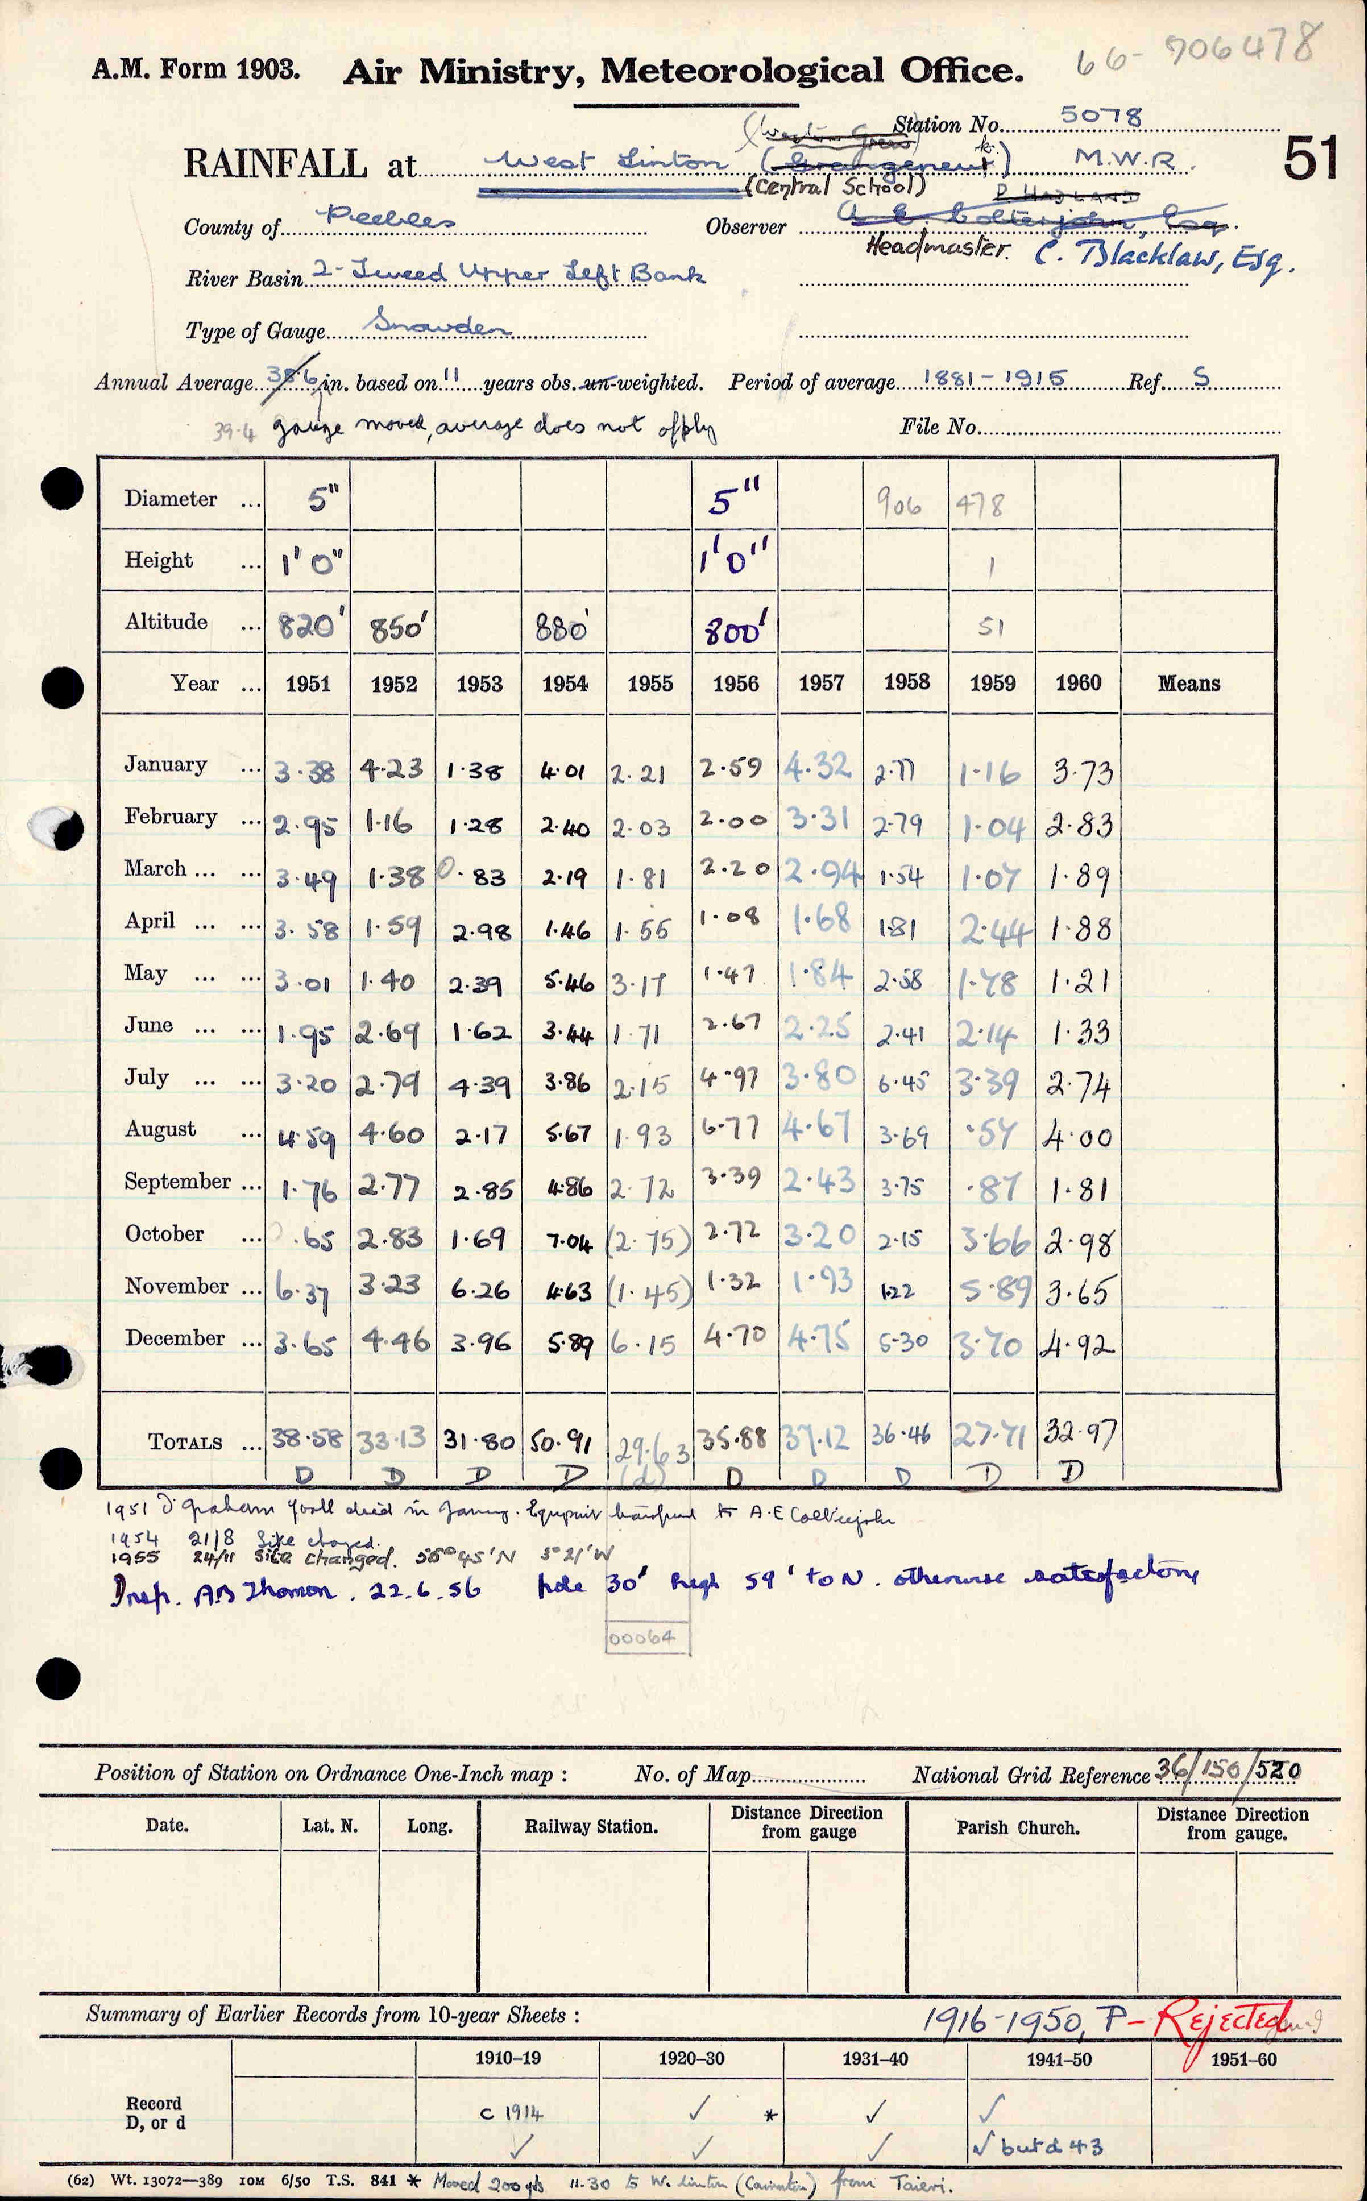 66-906478
A.M. Form 1903. Air Ministry, Meteorological Office.
Station No. 5078
RAINFALL at West Linton M.W.R. 51
(Central School) P HADLAND
County of Peebles Observer
Headmaster. C. Blacklaw, Esq.
River Basin 2- Tweed Upper Left Bank
Type of Gauge Snowden
Annual Average 38.6 in. based on 11 years obs. un-weighted. Period of average 1881-1915 Ref. S
39.4 gauge moved, average does not apply File No.
Diameter ... 5" 5" 906 478
Height ... 1' 0" 1'0" 1
Altitude ... 820' 850' 880' 800' 51
Year ... 1951 1952 1953 1954 1955 1956 1957 1958 1959 1960 Means
January ... 3.38 4.23 1.38 4.01 2.21 2.59 4.32 2.77 1.16 3.73
February ... 2.95 1.16 1.28 2.40 2.03 2.00 3.31 2.79 1.04 2.83
March ... ... 3.49 1.38 0.83 2.19 1.81 2.20 2.94 1.54 1.07 1.89
April ... ... 3.58 1.59 2.98 1.46 1.55 1.08 1.68 1.81 2.44 1.88
May ... ... 3.01 1.40 2.39 5.46 3.17 1.47 1.84 2.58 1.78 1.21
June ... ... 1.95 2.69 1.62 3.44 1.71 2.67 2.25 2.41 2.14 1.33
July ... ... 3.20 2.79 4.39 3.86 2.15 4.97 3.80 6.45 3.39 2.74
August ... 4.59 4.60 2.17 5.67 1.93 6.77 4.67 3.69 .57 4.00
September ... 1.76 2.77 2.85 4.86 2.72 3.39 2.43 3.75 .87 1.81
October ... .65 2.83 1.69 7.04 (2.75) 2.72 3.20 2.15 3.66 2.98
November ... 6.37 3.23 6.26 4.63 (1.45) 1.32 1.93 1.22 5.89 3.65
December ... 3.65 4.46 3.96 5.89 6.15 4.70 4.75 5.30 3.70 4.92
TOTALS ... 38.58 33.13 31.80 50.91 29.63 35.88 37.12 36.46 27.71 32.97
D D D D (d) D D D D D
1951 D Graham died in to A.E
1954 21/8 Site changed.
1955 24/11 Site changed. 55°45'N 3°21'W
Insp. AB Thomson. 22.6.56 pole 30' high 59' to N. otherwise satisfactory
00064
Position of Station on Ordnance One-Inch map : No. of Map National Grid Reference 36/150/520
Date. Lat. N. Long. Railway Station. Distance Direction from gauge Parish Church. Distance Direction from gauge.
Summary of Earlier Records from 10-year Sheets : 1916-1950, P- Rejected
1910–19 1920–30 1931–40 1941–50 1951–60
Record c 1914 ✓ * ✓ ✓
D, or d ✓ ✓ ✓ ✓ but d 43
(62) Wt. 13072—389 IOM 6/50 T.S. 841 * Moved 200 yds 11.30 to W. Linton from Taieri.